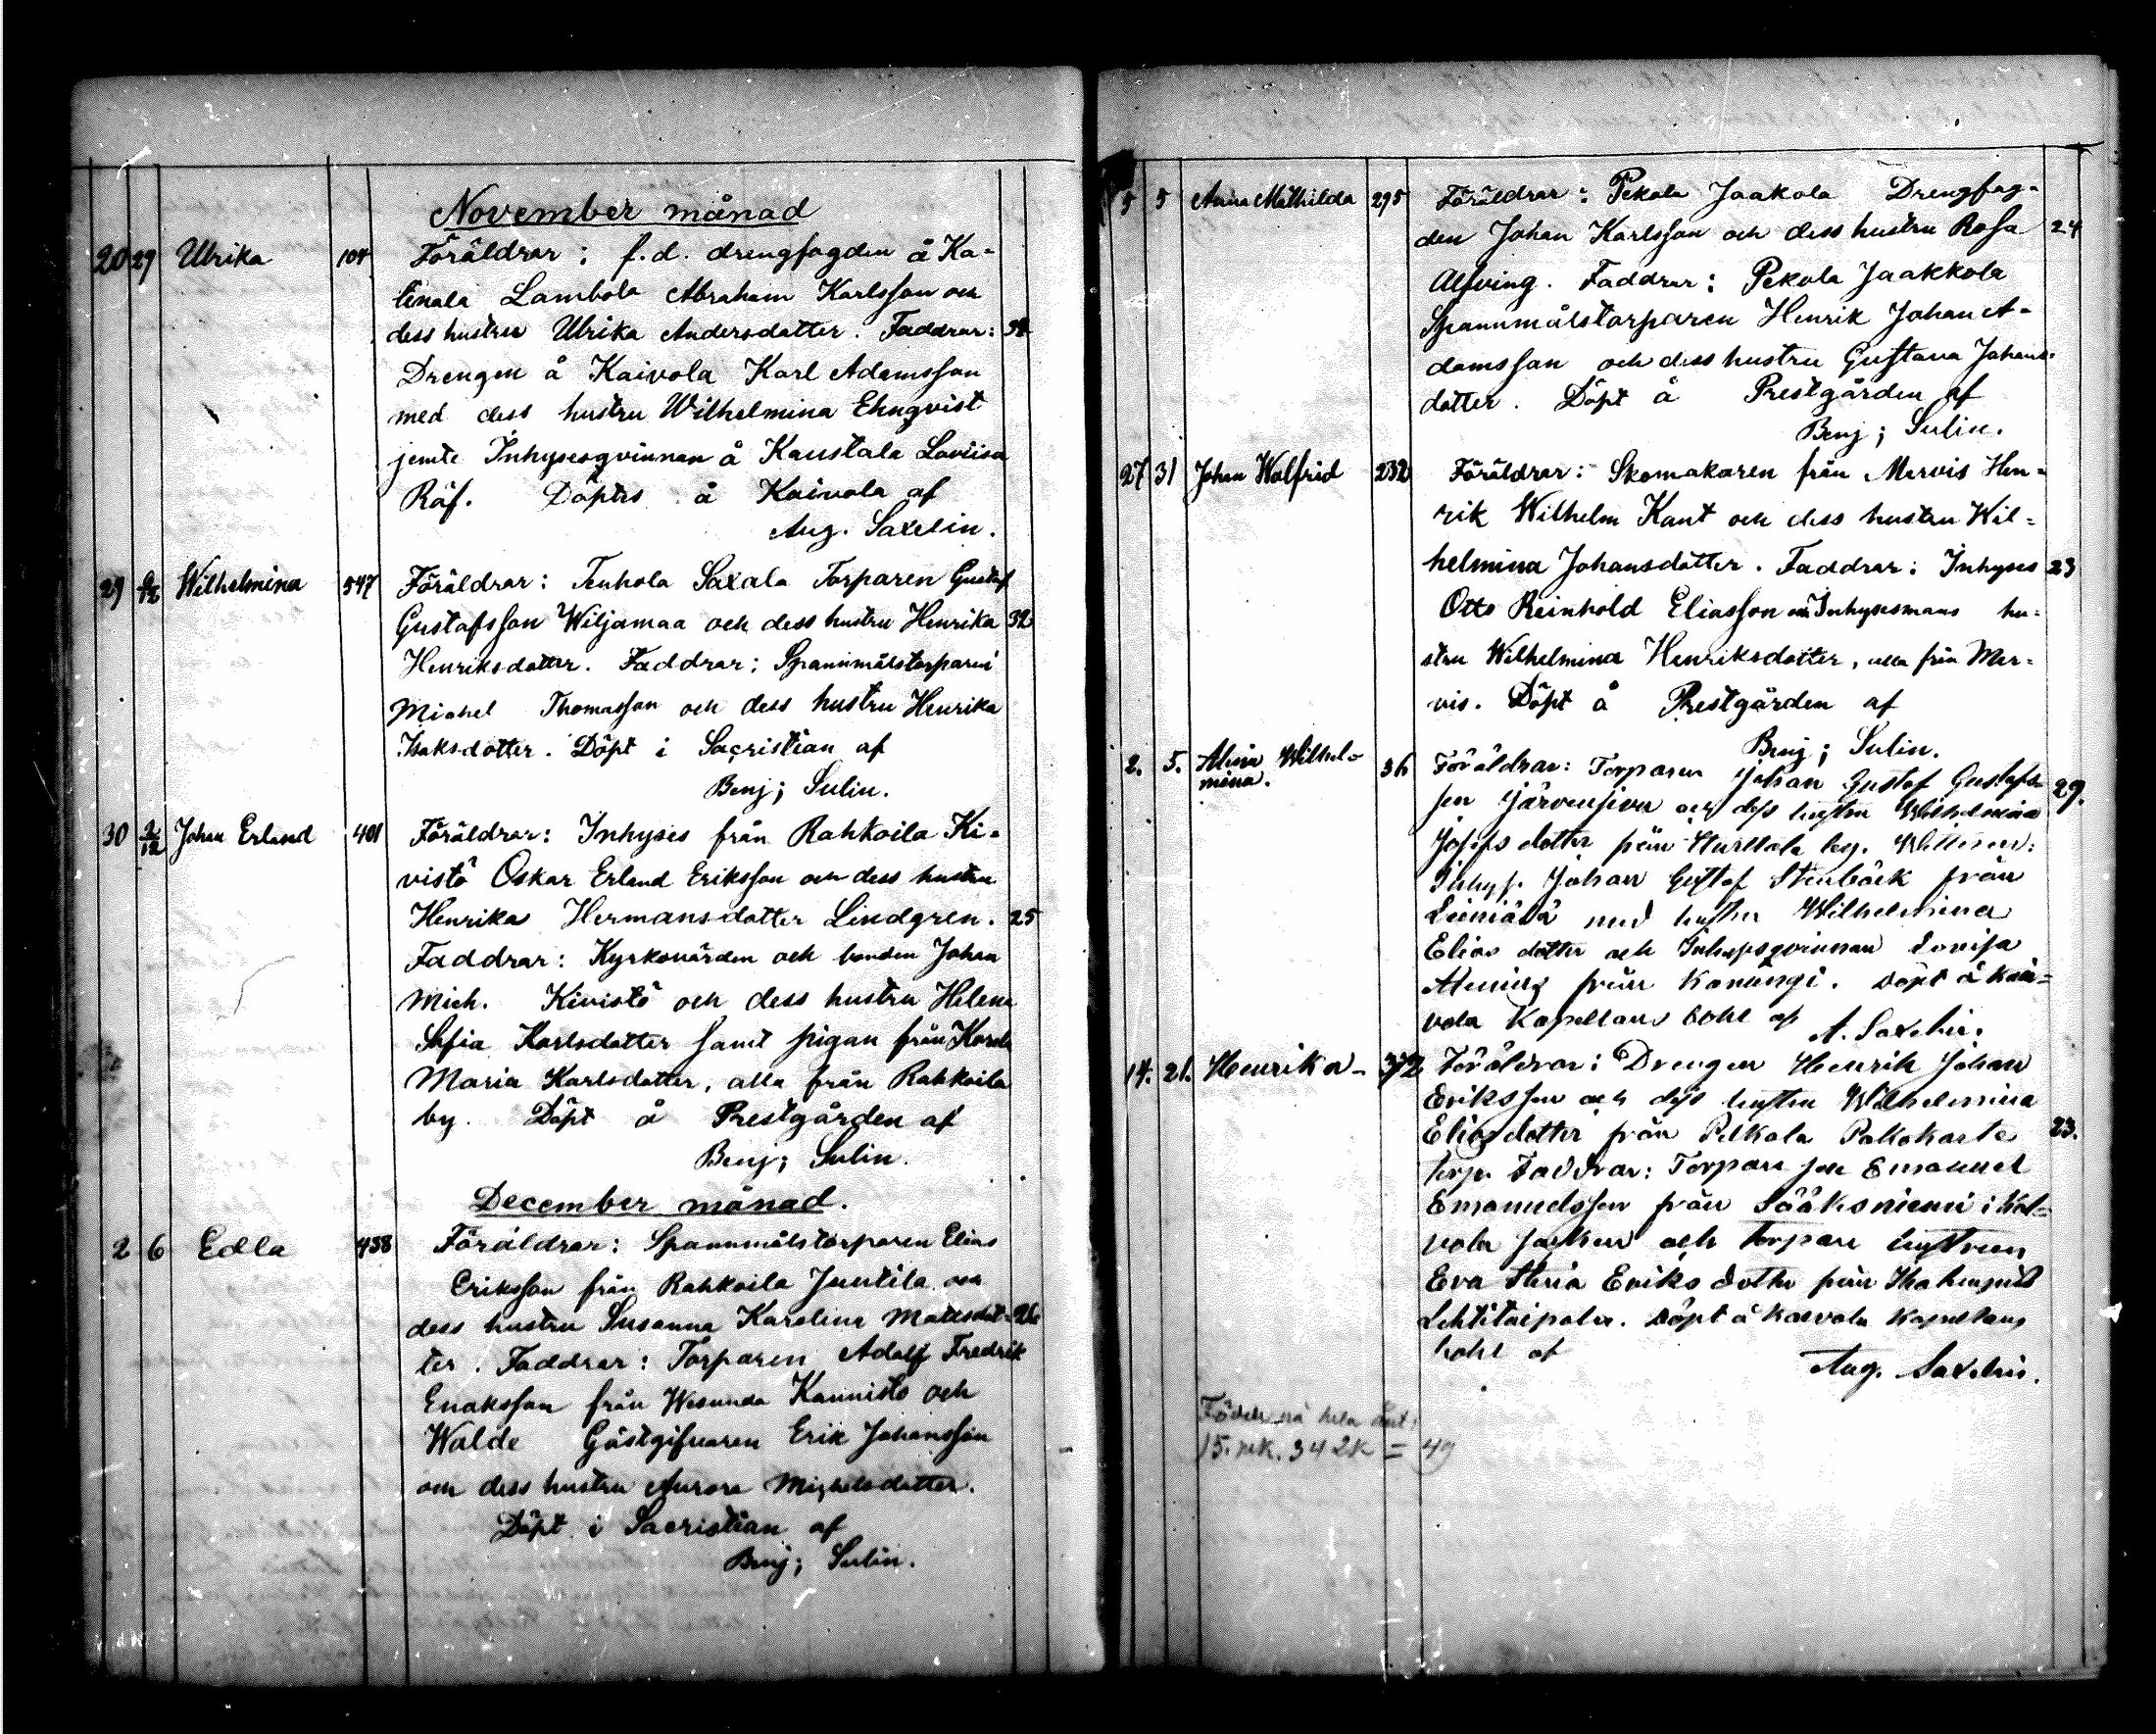 November månad
20 29 Ulrika 104 Föräldrar: f.d. drengfogden å Ka-
linala Lambola Abraham Karlsson och
dess hustru Ulrika Andersdotter. Faddrar:
Drengen å Kaivola Karl Adamsson
med dess hustru Wilhelmina Ehnqvist
jemte Inhysesqvinnan å Kaustala Loviisa
Räf. Döptes å Kaivola af
Aug. Saxelin.
29 9/12 Wilhelmina 547 Föräldrar: Tenhola Saxala Torparen Gustaf
Gustafsson Wiljamaa och dess hustru Henrika 32
Henriksdotter. Faddrar: Spannmålstorparen
Michel Thomasson och dess hustru Henrika
Isaksdotter. Döpt i Sacristian af
Benj; Sulin.
30 2/12 Johan Erland 401 Föräldrar: Inhyses från Rahkoila Ki-
vistö Oskar Erland Eriksson och dess hustru
Henrika Hermansdotter Lindgren. 25
Faddrar: Kyrkovärden och bonden Johan
Mich. Kivistö och dess hustru Helena
Sofia Karlsdotter samt pigan från
Maria Karlsdotter, alla från Rahkoila
by. Döpt å Prestgården af
Benj; Sulin.
December månad.
2 6 Edla 438 Föräldrar: Spannmålstorparen Elias
Eriksson från Rahkoila Juntila och
dess hustru Susanna Karolina Mattsdot- 26
ter. Faddrar: Torparen Adolf Fredrik
Enaksson från Wesunda Kannisto och
Walde Gästgifvaren Erik Johansson
och dess hustru Aurora Michelsdotter.
Döpt i Sacristian af
Benj; Sulin.
5 5 Anna Mathilda 295 Föräldrar: Pekola Jaakola Drengfog-
den Johan Karlsson och dess hustru Rosa 24
Alfving. Faddrar: Pekola Jaakkola
Spannmålstorparen Henrik Johan A-
damsson och dess hustru Gustava Johans-
dotter. Döpt å Prestgården af
Benj; Sulin.
27 31 Johan Walfrid 232 Föräldrar: Skomakaren från Mervis Hen-
rik Wilhelm Kant och dess hustru Wil-
helmina Johansdotter. Faddrar: Inhyses 23
Otto Reinhold Eliasson och Inhysesmans hu-
stru Wilhelmina Henriksdotter, alla från Mer-
vis. Döpt å Prestgården af
Benj; Sulin.
2. 5. Alma Wilhel- 36 Föräldrar: Torparen Johan Gustaf Gustafs-
mina. son Järvensivu och dess hustru Wilhelmina 29.
Josefsdotter från Hurttala by. Wittnen:
Inhys. Johan Gustaf Stenbäck från
med hustru Wilhelmina
Elias dotter och Inhysesqvinnan Lovisa
från Kanungi. Döpt å Kai-
vola Kapellans bohl af A. Saxelin.
14. 21. Henrika 372 Föräldrar: Drengen Henrik Johan
Eriksson och dess hustru Wilhelmina
Eliasdotter från Pelkola Pakokarta 23.
torp. Faddrar: Torpare son Emanuel
Emanuelsson från Sääksniemi i Kal-
vola socken och torpare hustrun
Eva Maria Eriks dotter från
Lehtitaipale. Döpt å Kaivola Kapellans
bohl af Aug. Saxelin.
Födde på hela
15. mk. 34 2k = 49